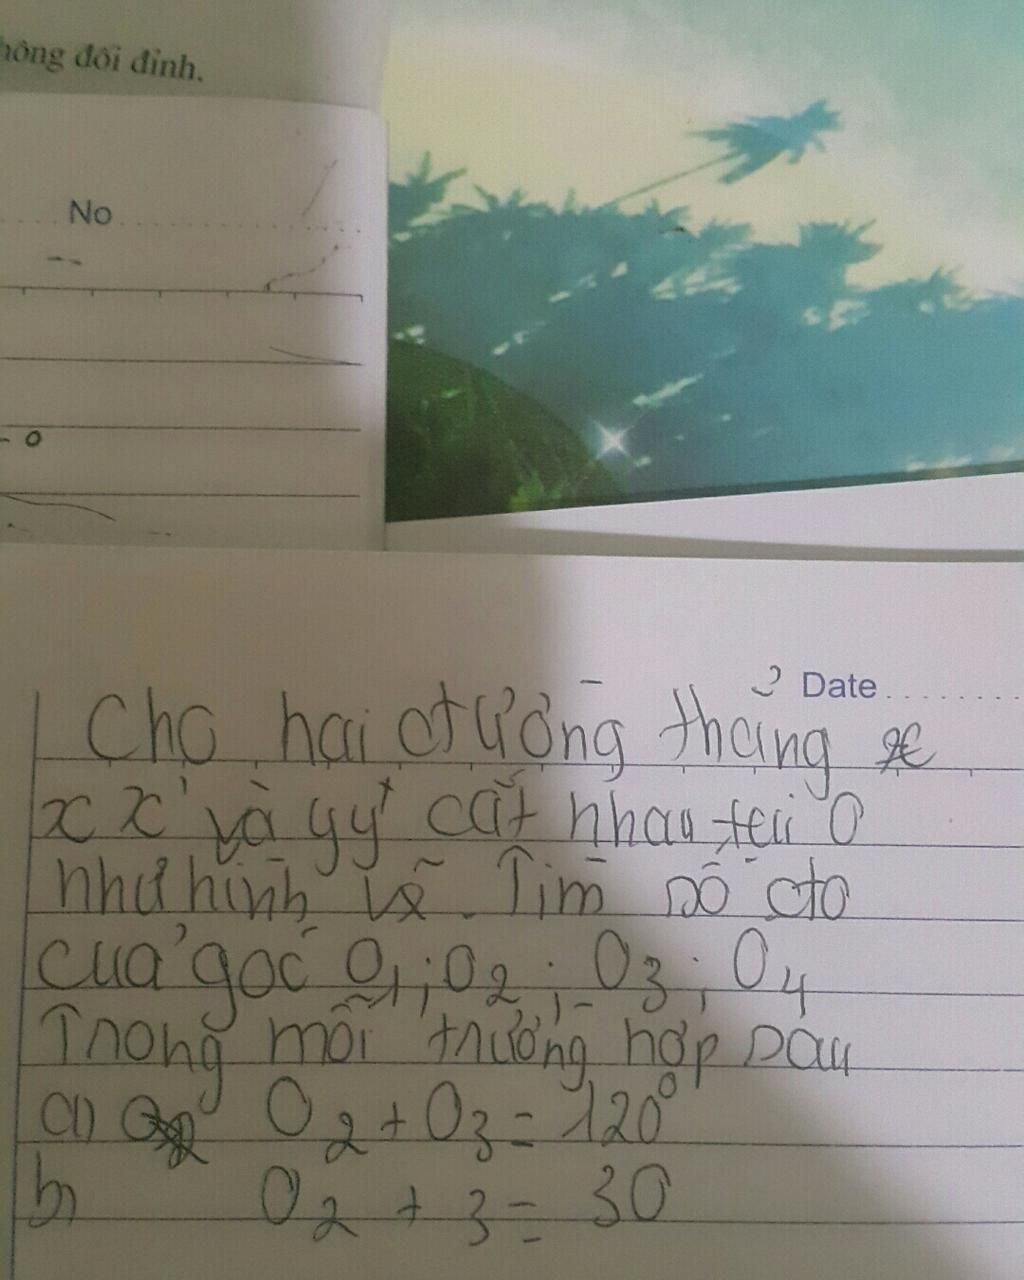 hông đối đỉnh.
No
Date
Cho hai đường thẳng
xx' và yy' cắt nhau tại O
như hình vẽ. Tìm số đo
của góc O1; O2; O3; O4
Trong mỗi trường hợp sau
a) O2 + O3 = 120°
b) O2 + 3 = 30